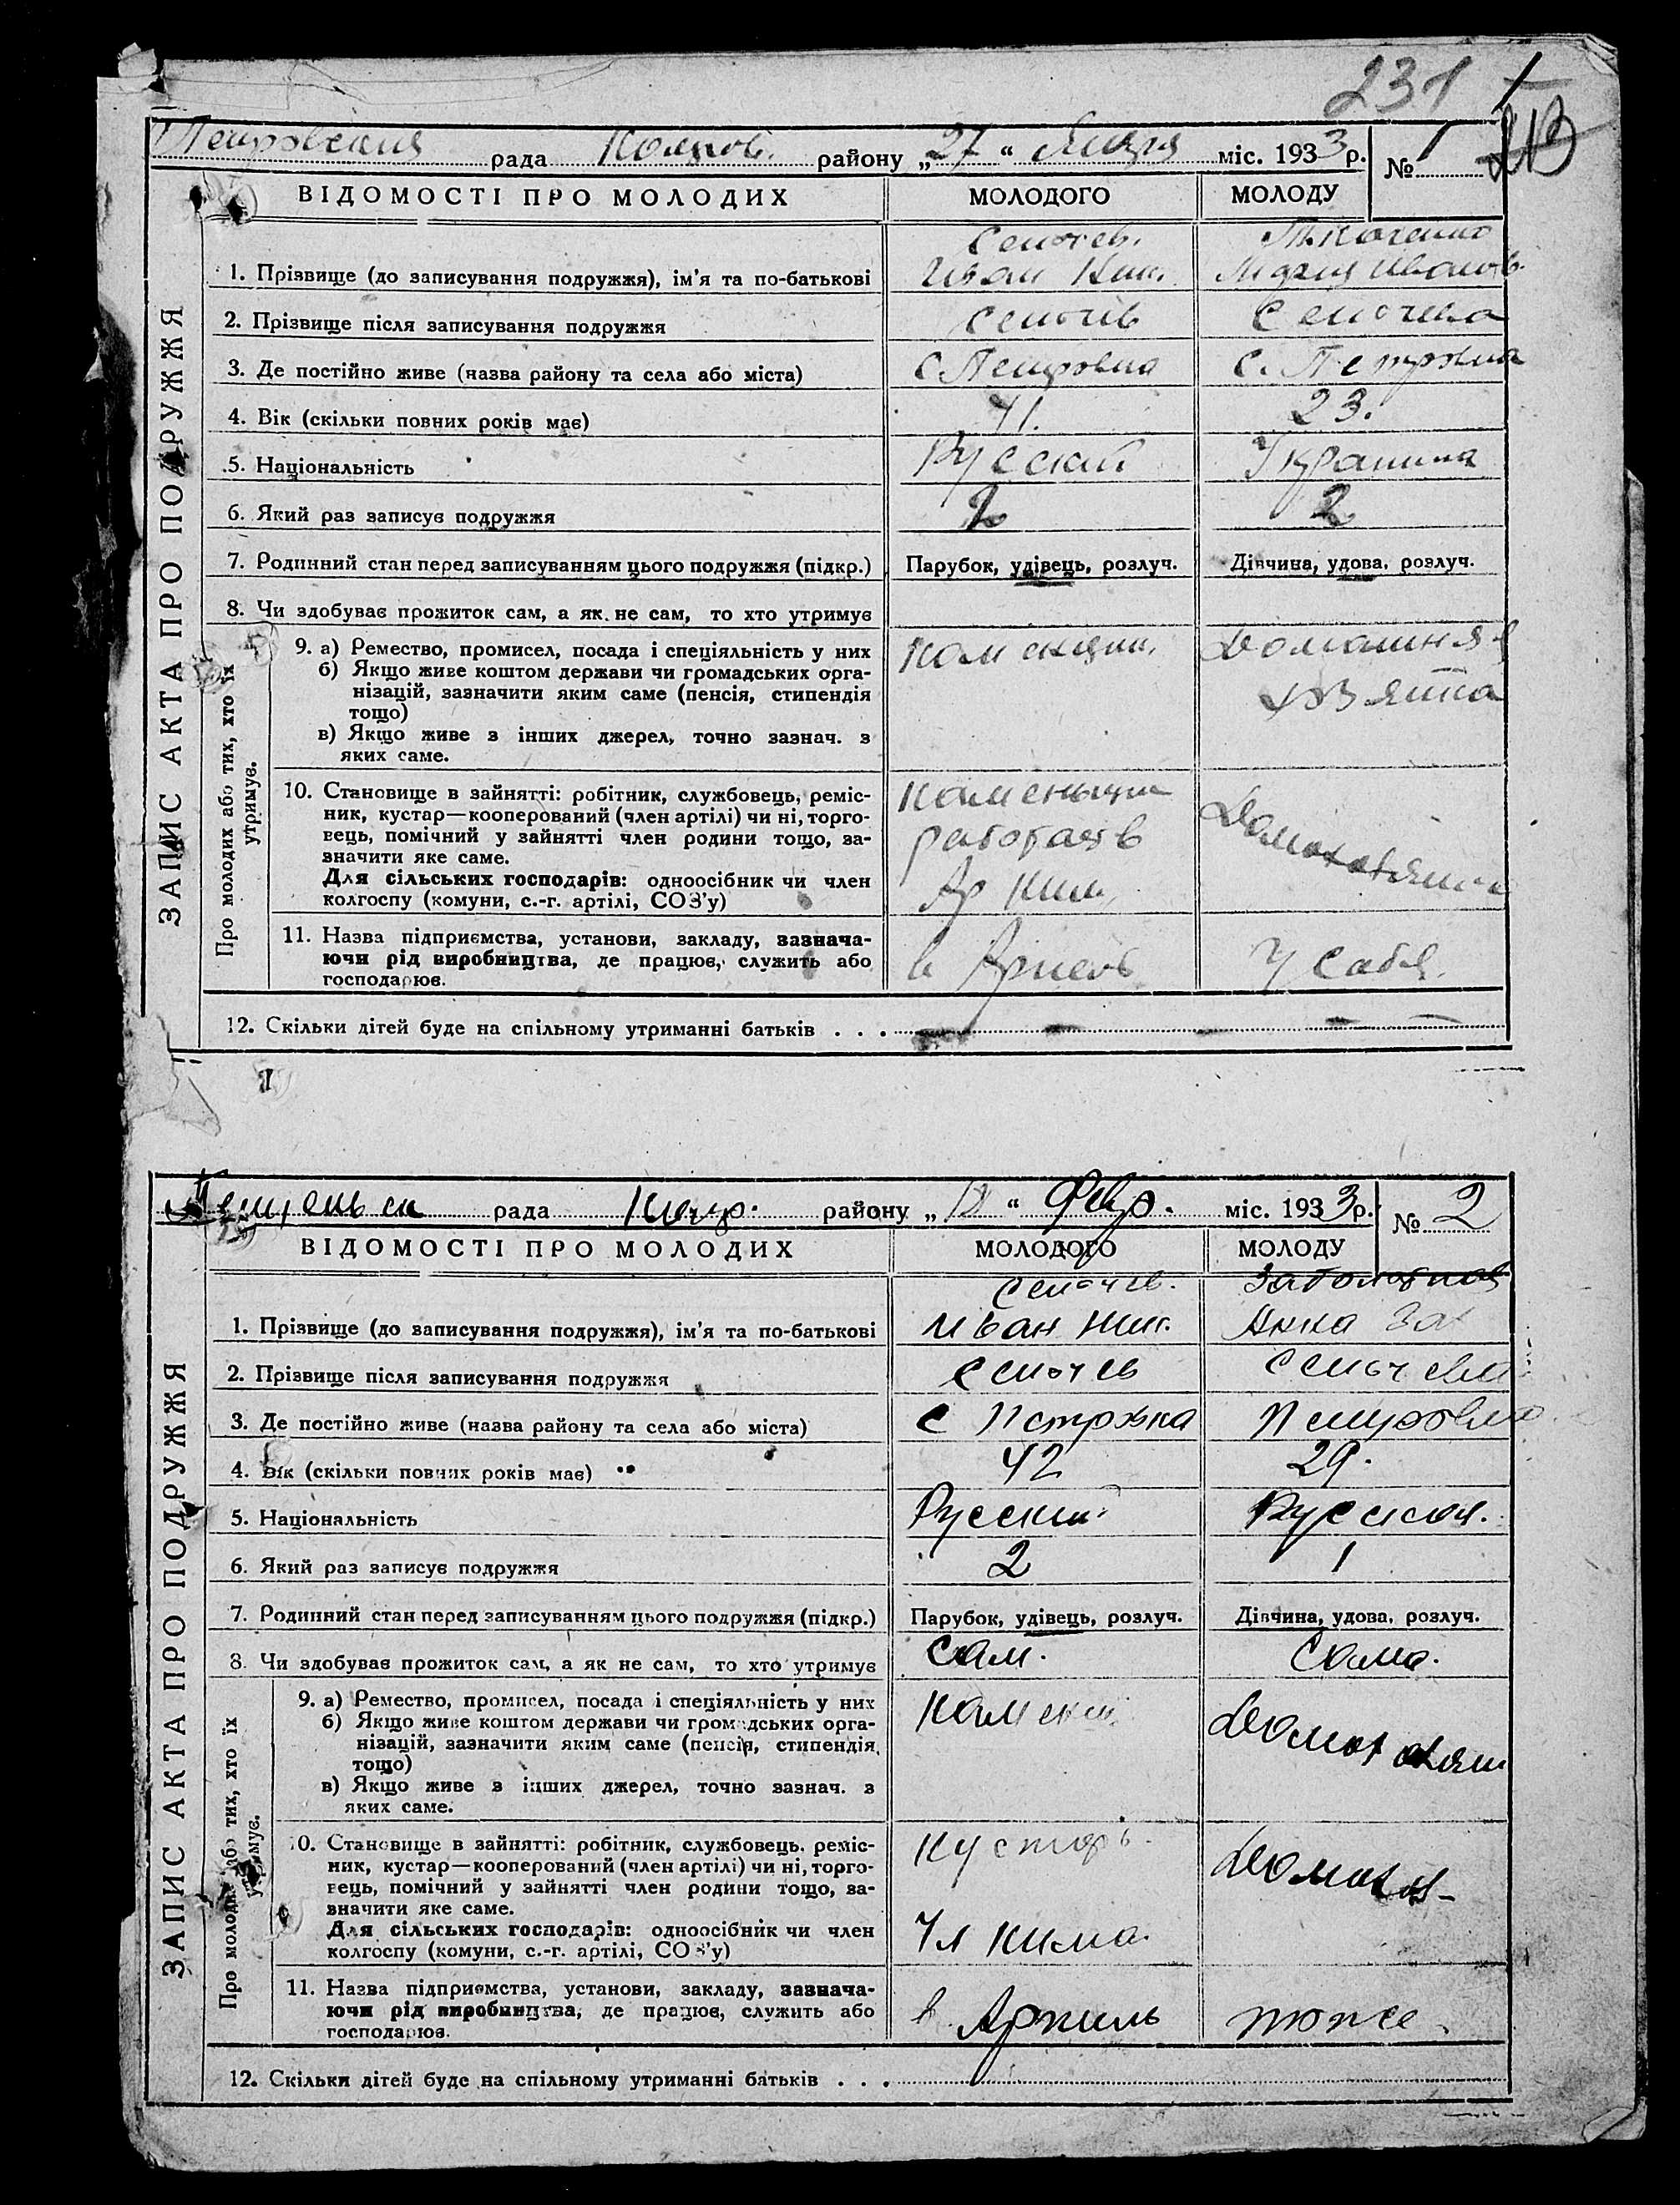 231 1
Петровская рада района „27“ Января міс. 1933 р. № 1 213
ВІДОМОСТІ ПРО МОЛОДИХ МОЛОДОГО МОЛОДУ
ЗАПИС АКТА ПРО ПОДРУЖЖЯ
Ткаченко
1. Прізвище (до записування подружжя), ім’я та по-батькові Иван Ник. Мария Иванов.
2. Прізвище після записування подружжя
3. Де постійно живе (назва району та села або міста) с. Петровка с. Петровка
4. Вік (скільки повних років має) 41. 23.
5. Національність Русский Украинка
6. Який раз записує подружжя 2 2
7. Родинний стан перед записуванням цього подружжя (підкр.) Парубок, удівець, розлуч. Дівчина, удова, розлуч.
8. Чи здобуває прожиток сам, а як не сам, то хто утримує
Про молодих або тих, хто їх
утримує.
9. а) Ремество, промисел, посада і спеціяльність у них Домашняя
б) Якщо живе коштом держави чи громадських орга-
нізацій, зазначити яким саме (пенсія, стипендія
тощо)
в) Якщо живе з інших джерел, точно зазнач. з
яких саме.
10. Становище в зайнятті: робітник, службовець, реміс-
ник, кустар—кооперований (член артілі) чи ні, торго-
вець, помічний у зайнятті член родини тощо, за-
значити яке саме.
Для сільських господарів: одноосібник чи член
колгоспу (комуни, с.-г. артілі, СОЗ’у)
11. Назва підприємства, установи, закладу, зазнача-
ючи рід виробництва, де працює, служить або
господарює.
12. Скільки дітей буде на спільному утриманні батьків . . . — — —
рада району „ “ Февр. міс. 1933 р. № 2
ВІДОМОСТІ ПРО МОЛОДИХ МОЛОДОГО МОЛОДУ
ЗАПИС АКТА ПРО ПОДРУЖЖЯ
1. Прізвище (до записування подружжя), ім’я та по-батькові Иван Ник. Анна Зах
2. Прізвище після записування подружжя
3. Де постійно живе (назва району та села або міста) с Петровка Петровка
4. Вік (скільки повних років має) 42 29.
5. Національність Русский Русская.
6. Який раз записує подружжя 2 1
7. Родинний стан перед записуванням цього подружжя (підкр.) Парубок, удівець, розлуч. Дівчина, удова, розлуч.
8. Чи здобуває прожиток сам, а як не сам, то хто утримує Сам. Сама.
Про молодих або тих, хто їх
утримує.
9. а) Ремество, промисел, посада і спеціяльність у них
б) Якщо живе коштом держави чи громадських орга-
нізацій, зазначити яким саме (пенсія, стипендія,
тощо)
в) Якщо живе з інших джерел, точно зазнач. з
яких саме.
10. Становище в зайнятті: робітник, службовець, реміс- Кустарь
ник, кустар—кооперований (член артілі) чи ні, торго-
вець, помічний у зайнятті член родини тощо, за-
значити яке саме.
Для сільських господарів: одноосібник чи член
колгоспу (комуни, с.-г. артілі, СОЗ’у)
11. Назва підприємства, установи, закладу, зазнача-
ючи рід виробництва, де працює, служить або в Артиль тоже
господарює.
12. Скільки дітей буде на спільному утриманні батьків . . .